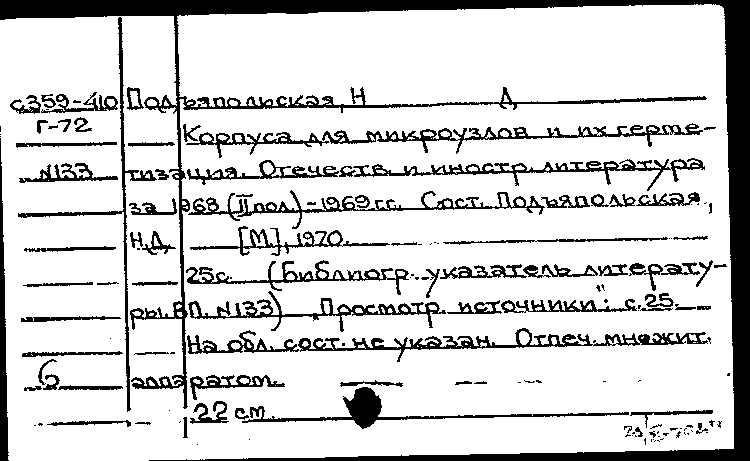 с.359-410 Подъяпольская, Н Д.
Г-72 Корпуса для микроузлов и их герме-
№133 тизация. Отечеств. и иностр. литература
за 1968 (II пол.) - 1969 гг. Сост. Подъяпольская,
Н.Д. [М], 1970.
25 с. (Библиогр. указатель литерату-
ры. ВП. №133) "Просмотр. источники": с. 25.
На обл. сост. не указан. Отпеч. множит.
6 аппаратом.
22 см.